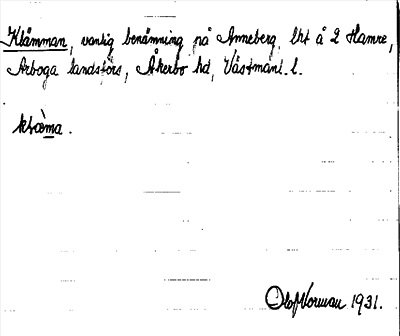 Klämman, vanlig benämning på Anneberg, lht å 2 Hamre,
Arboga landsförs, Åkerbo hd, Västmanl. l.
klæ̀ma.
Olof Norman 1931.